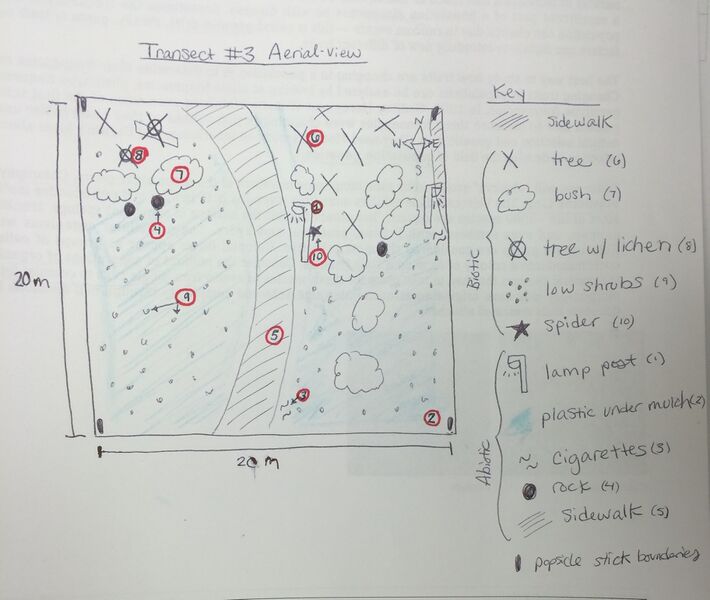 Transect #3 Aerial-view
20m
20 m
N
W E
S
6
8
7
1
4
10
9
5
3
2
Key
sidewalk
Biotic
tree (6)
bush (7)
tree w/ lichen (8)
low shrubs (9)
spider (10)
Abiotic
lamp post (1)
plastic under mulch (2)
cigarettes (3)
rock (4)
Sidewalk (5)
popsicle stick boundaries